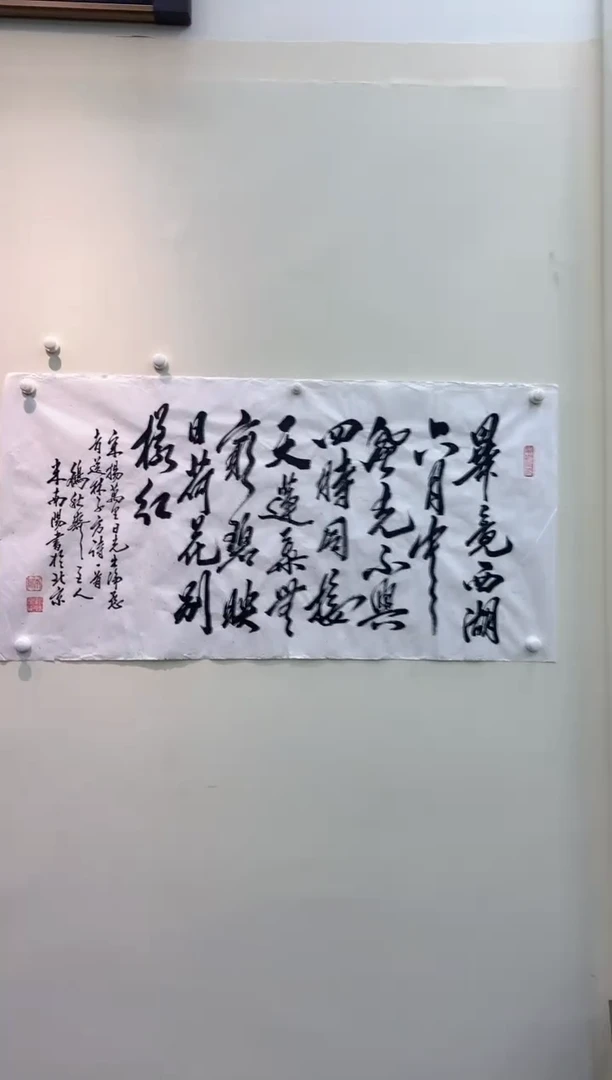 畢竟西湖
六月中
風光不與
四時同接
天蓮葉無
窮碧映
日荷花別
樣紅
宋楊萬里曉出淨慈
寺送林子方詩一首
主人
南陽書於北京